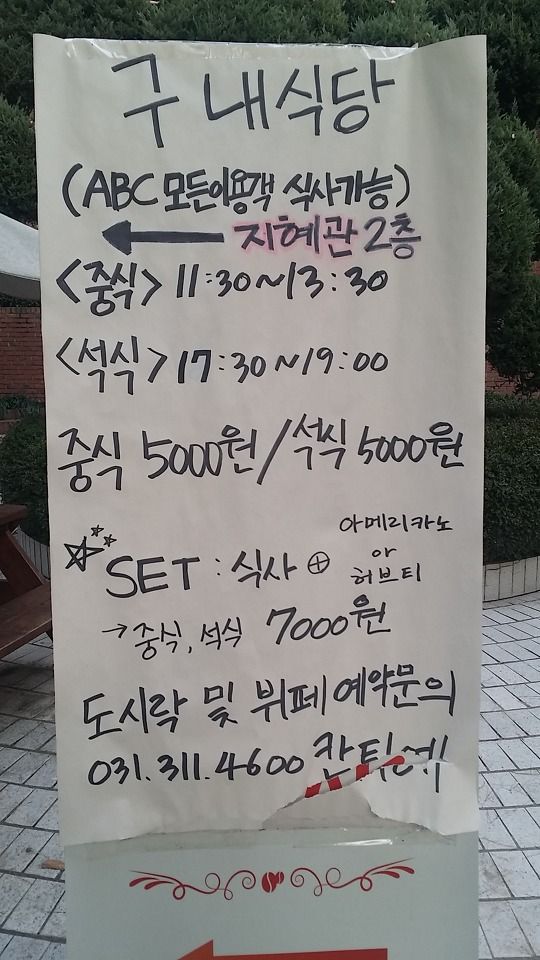 구내식당
(ABC 모든이용객 식사가능)
지혜관 2층
<중식> 11:30~13:30
<석식> 17:30~19:00
중식 5000원/석식 5000원
SET : 식사 ⊕ 아메리카노
아
허브티
→ 중식, 석식 7000원
도시락 및 뷔페 예약문의
031.311.4600